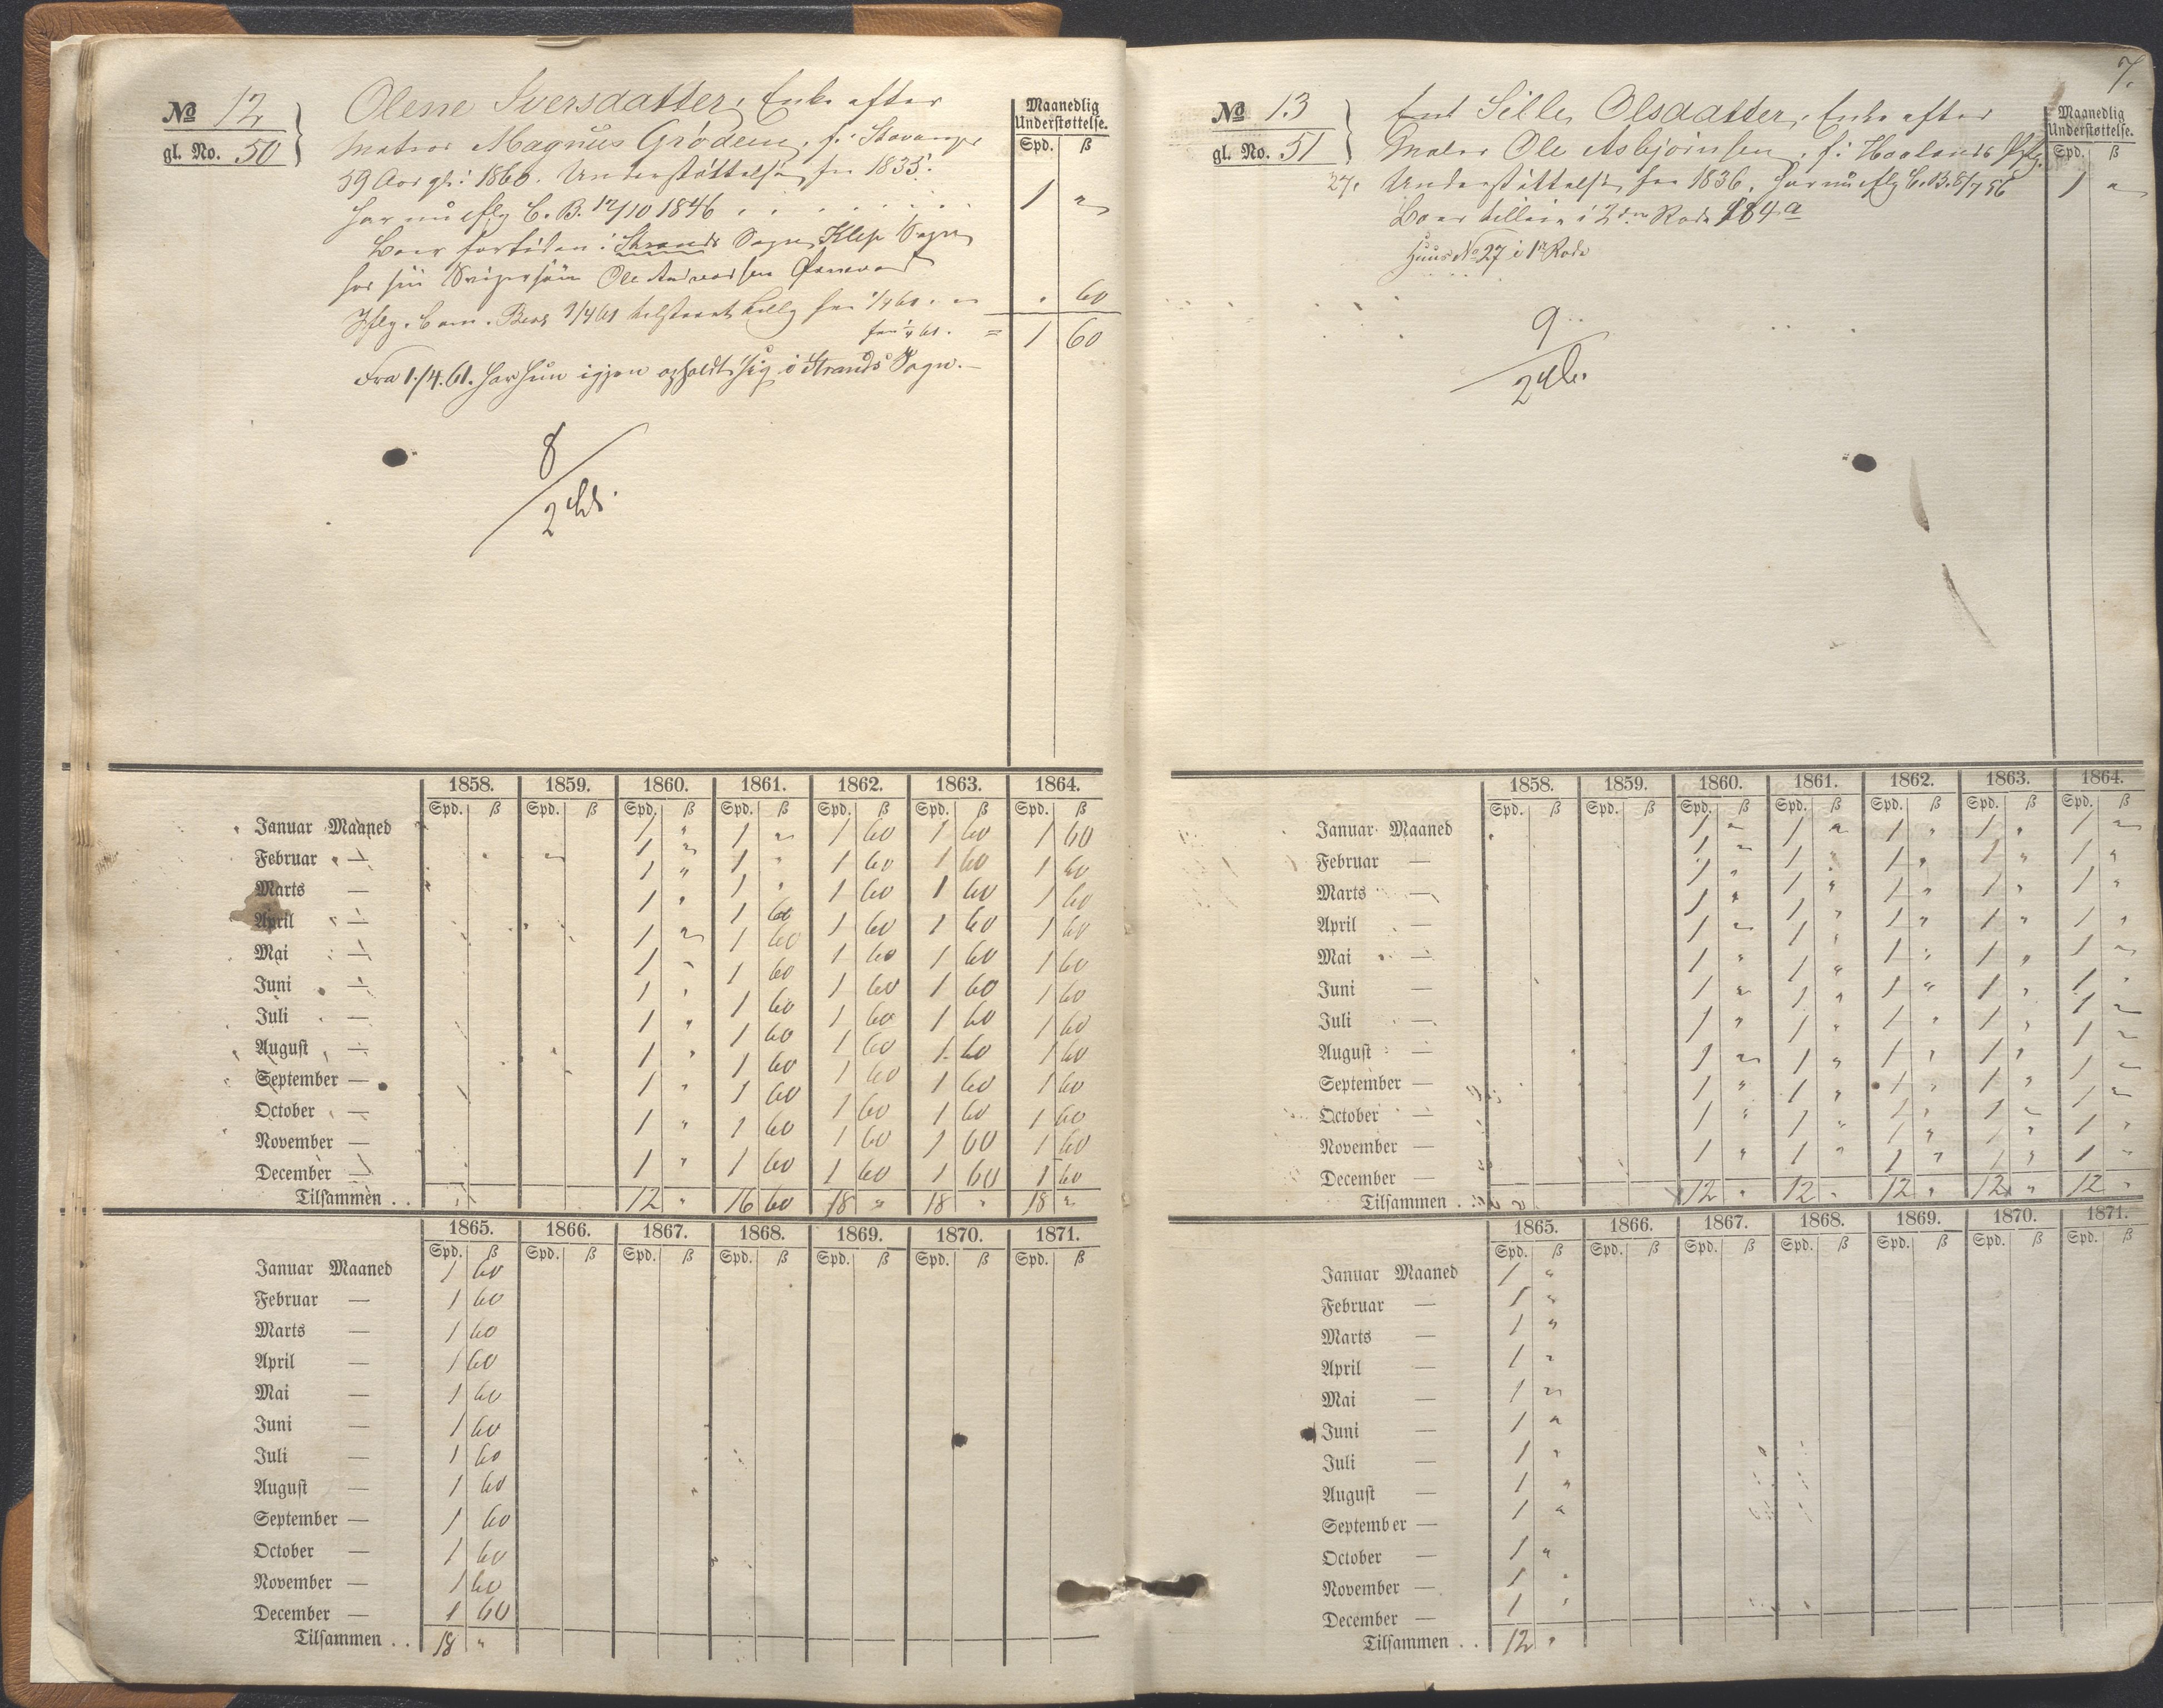 No 12
gl. No. 50
Olene Iversdatter, Enke efter
Matros Magnus Grødem, f. i Stavanger
59 Aar gl. i 1860. Understøttelse fra 1835.
har nu eflg C. B. 12/10 1846 . . . . . . .
Boer for tiden i Strands Sogn Klep Sogn
hos sin Svigersøn Ole Andreassen
Iflg. Com. Besl 9/4 61 tilstaaet Tillæg fra 1/4 61.
fra 1/4 61. =
Fra 1./4. 61. har hun igjen opholdt sig i Strands Sogn.
8
2
Maanedlig
Understøttelse.
Spd. ß
1 "
. 60
1 60
1858. 1859. 1860. 1861. 1862. 1863. 1864.
Spd. ß Spd. ß Spd. ß Spd. ß Spd. ß Spd. ß Spd. ß
Januar Maaned 1 " 1 " 1 60 1 60 1 60
Februar — 1 " 1 " 1 60 1 60 1 60
Marts — 1 " 1 " 1 60 1 60 1 60
April — 1 " 1 60 1 60 1 60 1 60
Mai — 1 " 1 60 1 60 1 60 1 60
Juni — 1 " 1 60 1 60 1 60 1 60
Juli — 1 " 1 60 1 60 1 60 1 60
August — 1 " 1 60 1 60 1 60 1 60
September — 1 " 1 60 1 60 1 60 1 60
October — 1 " 1 60 1 60 1 60 1 60
November — 1 " 1 60 1 60 1 60 1 60
December — 1 " 1 60 1 60 1 60 1 60
Tilsammen . . 12 " 16 60 18 " 18 " 18 "
1865. 1866. 1867. 1868. 1869. 1870. 1871.
Spd. ß Spd. ß Spd. ß Spd. ß Spd. ß Spd. ß Spd. ß
Januar Maaned 1 60
Februar — 1 60
Marts — 1 60
April — 1 60
Mai — 1 60
Juni — 1 60
Juli — 1 60
August — 1 60
September — 1 60
October — 1 60
November — 1 60
December — 1 60
Tilsammen . . 18 "
7.
No 13
gl. No. 51
27.
Sille Olsdatter, Enke efter
Maler Ole Asbjørnsen, f. i Haalands Pgld.
Understøttelse fra 1836, har nu eflg C. B. 8/7 56
Boer tilleie i 2den Rode 184 a
Huus No 27 i 1ste Rode
9
2
Maanedlig
Understøttelse.
Spd. ß
1 "
1858. 1859. 1860. 1861. 1862. 1863. 1864.
Spd. ß Spd. ß Spd. ß Spd. ß Spd. ß Spd. ß Spd. ß
Januar Maaned 1 " 1 " 1 " 1 " 1 "
Februar — 1 " 1 " 1 " 1 " 1 "
Marts — 1 " 1 " 1 " 1 " 1 "
April — 1 " 1 " 1 " 1 " 1 "
Mai — 1 " 1 " 1 " 1 " 1 "
Juni — 1 " 1 " 1 " 1 " 1 "
Juli — 1 " 1 " 1 " 1 " 1 "
August — 1 " 1 " 1 " 1 " 1 "
September — 1 " 1 " 1 " 1 " 1 "
October — 1 " 1 " 1 " 1 " 1 "
November — 1 " 1 " 1 " 1 " 1 "
December — 1 " 1 " 1 " 1 " 1 "
Tilsammen . . 12 " 12 " 12 " 12 " 12 "
1865. 1866. 1867. 1868. 1869. 1870. 1871.
Spd. ß Spd. ß Spd. ß Spd. ß Spd. ß Spd. ß Spd. ß
Januar Maaned 1 "
Februar — 1 "
Marts — 1 "
April — 1 "
Mai — 1 "
Juni — 1 "
Juli — 1 "
August — 1 "
September — 1 "
October — 1 "
November — 1 "
December — 1 "
Tilsammen . . 12 "